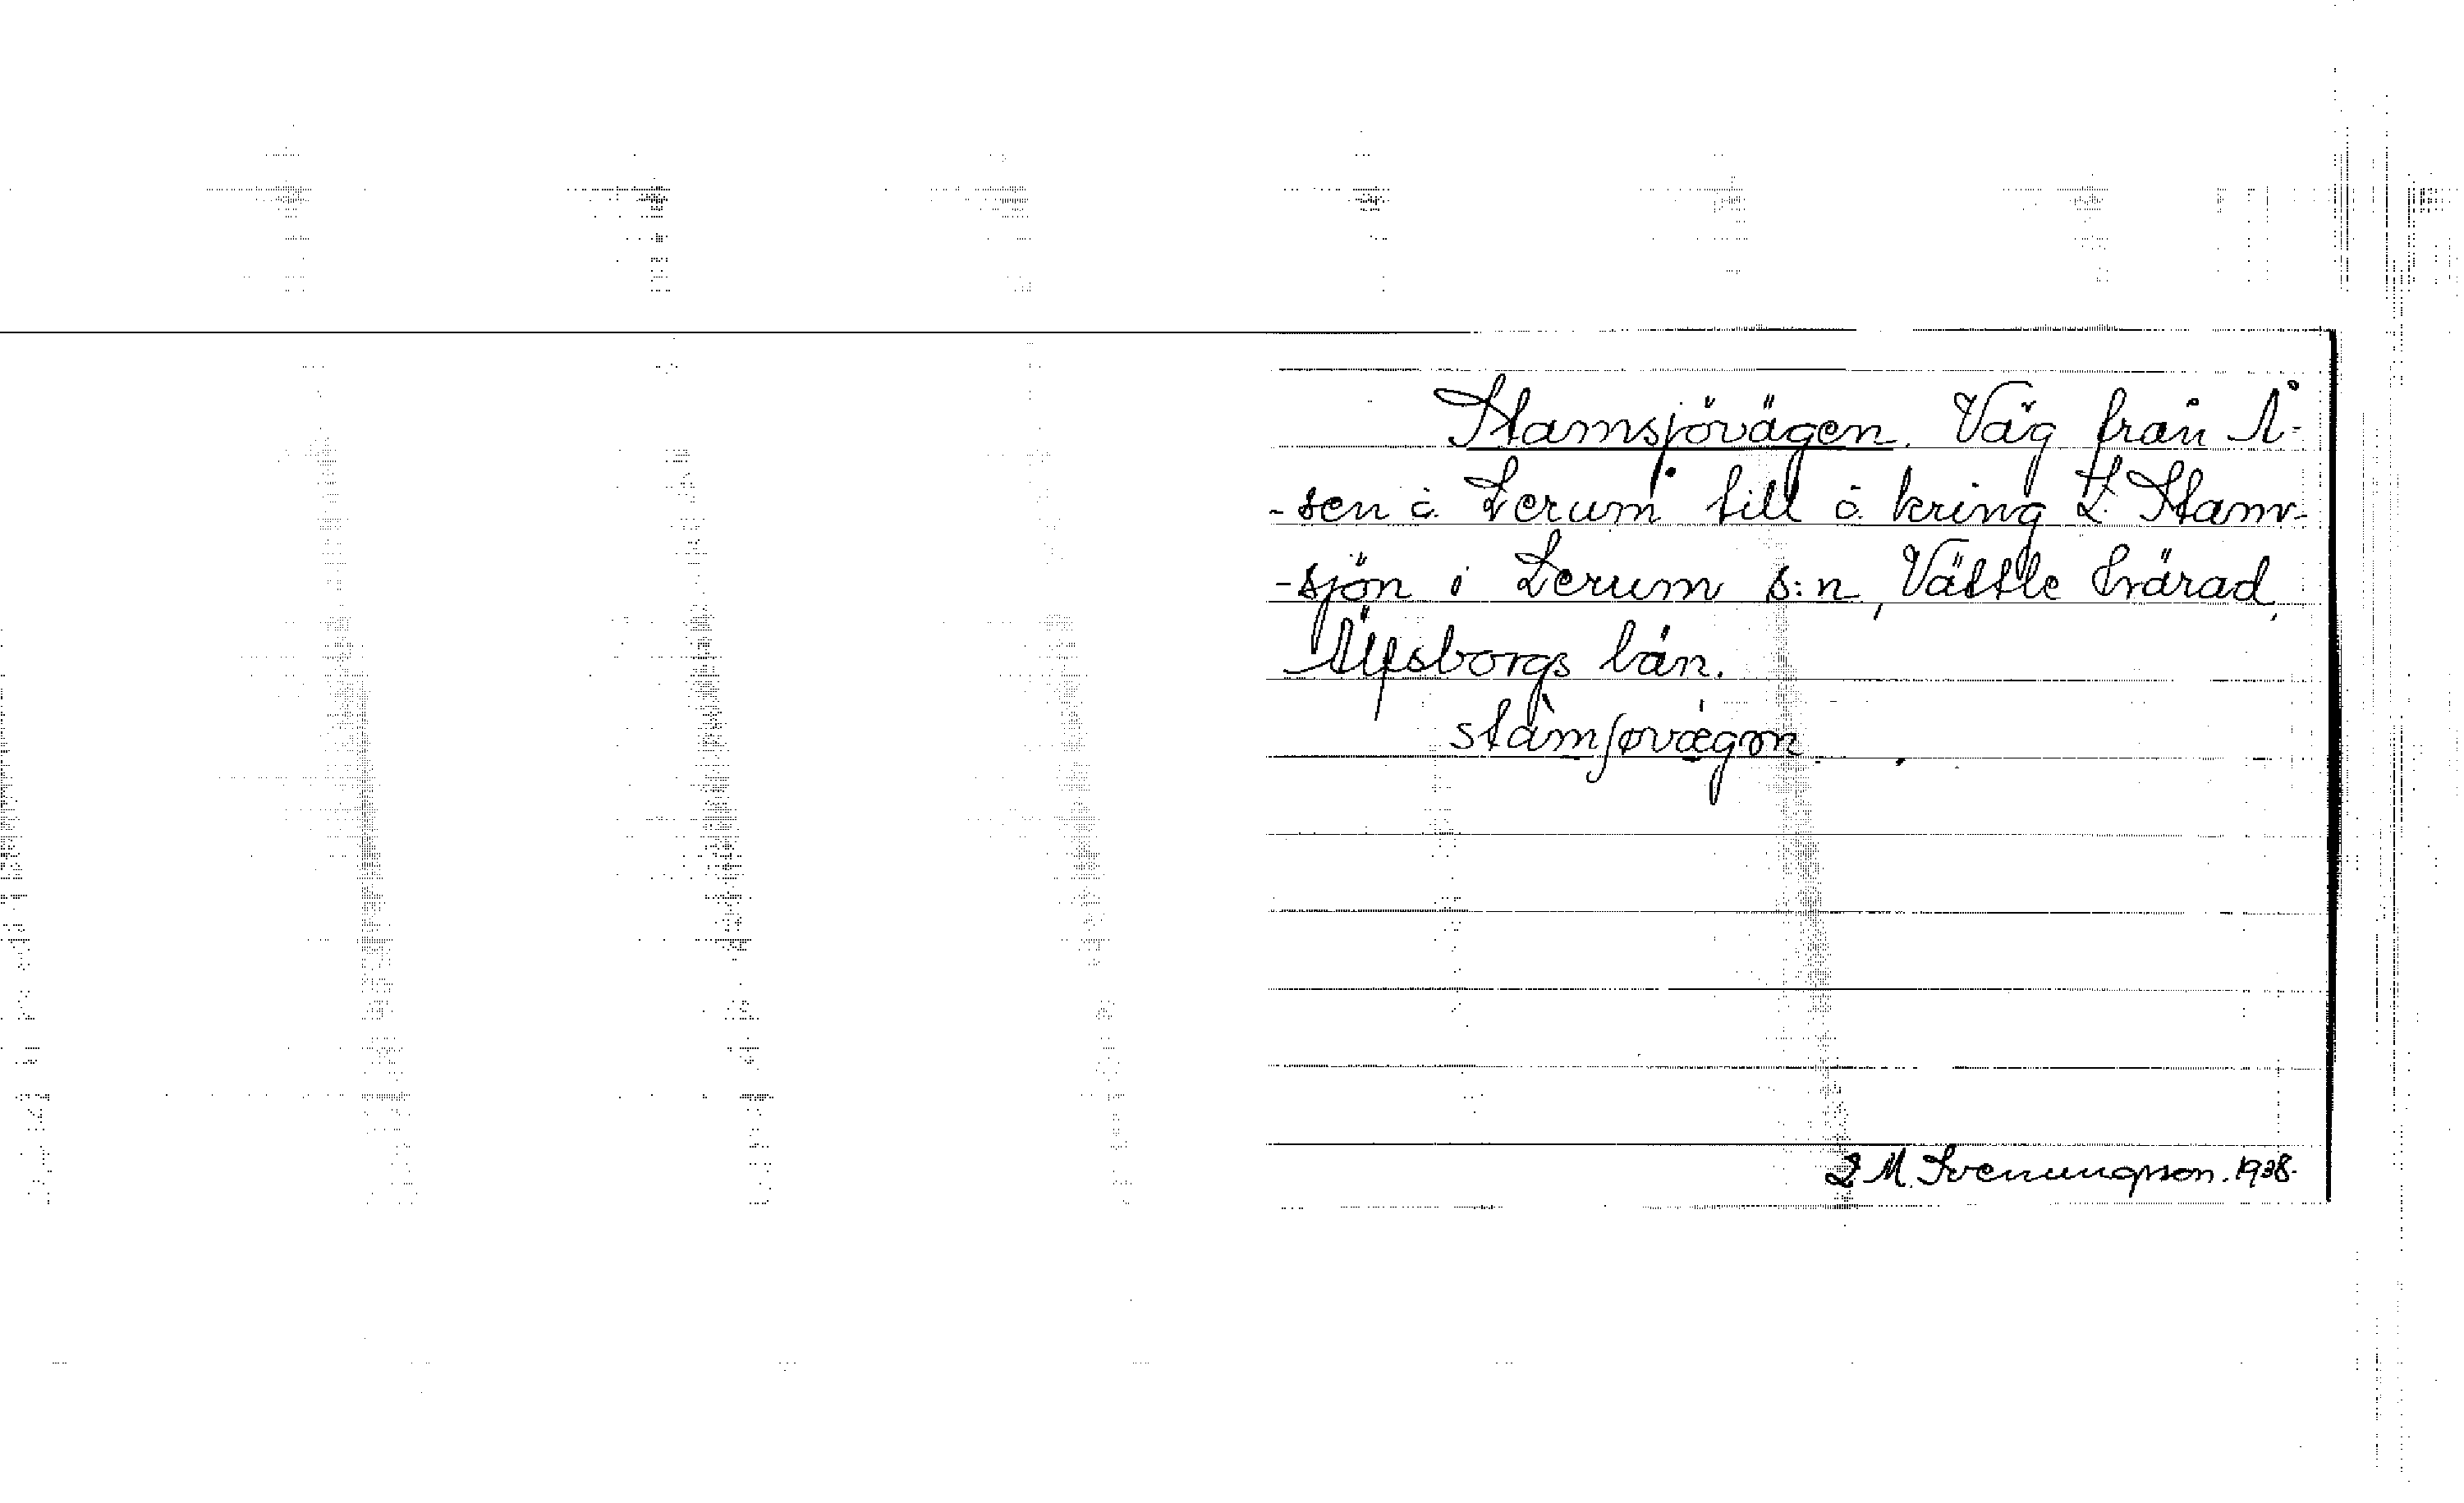 Stamsjövägen. Väg från Å-
-sen i Lerum till o. kring L. Stam-
-sjön i Lerum s:n, Vättle härad,
Älfsborgs län.
stàmʃøvægən
S. M. Svenungsson. 1938.